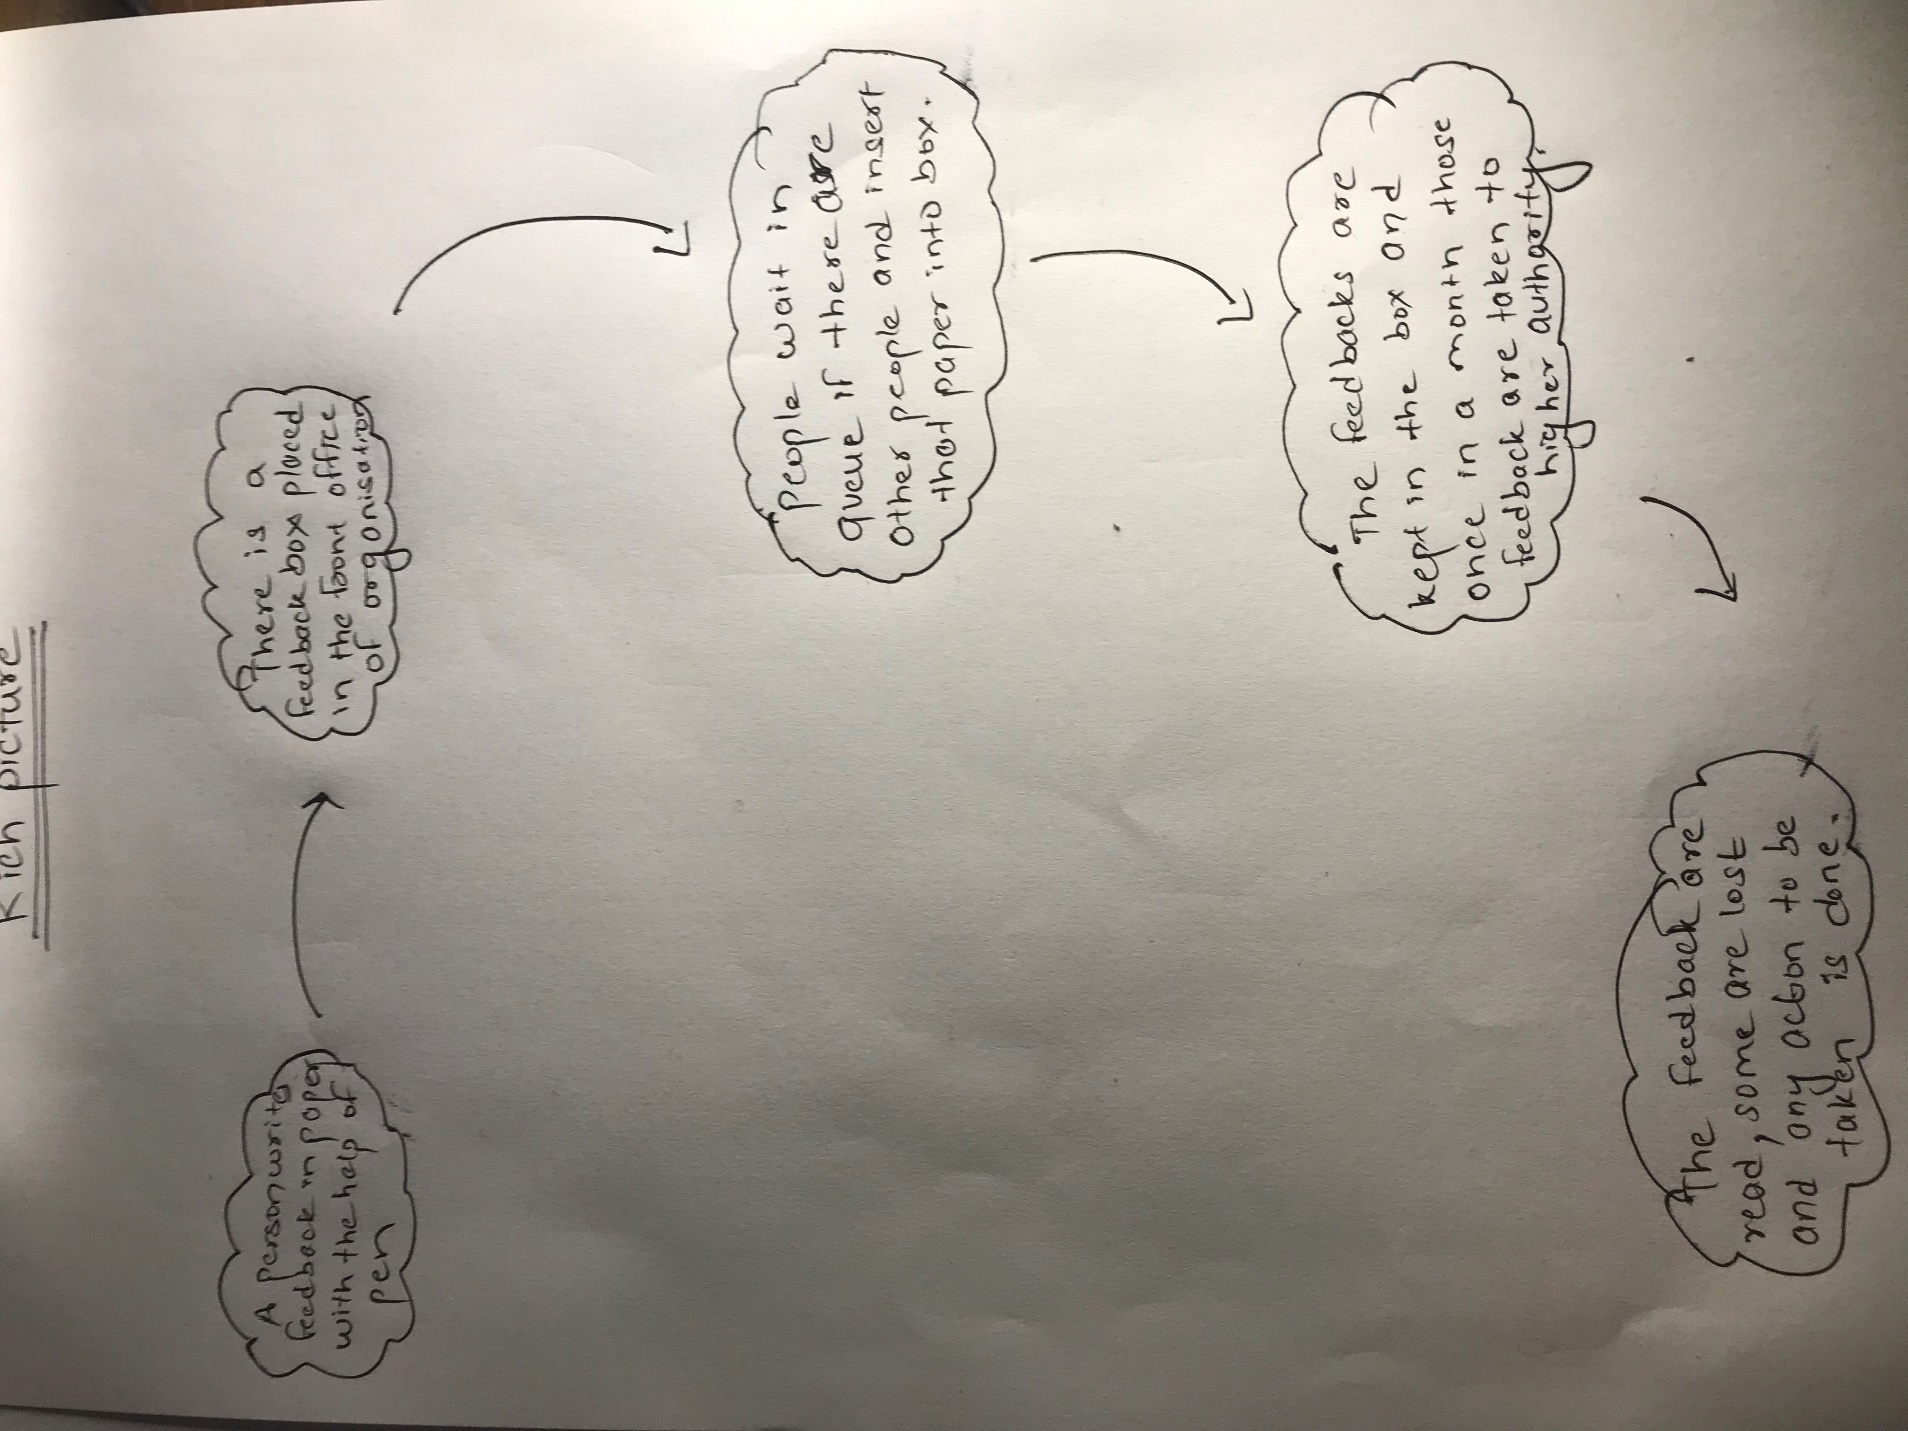 Rich picture
A person writes
feedback in paper
with the help of
pen
There is a
feedback box placed
in the front office
of organisation
people wait in
queue if there are
other people and insert
that paper into box.
The feedbacks are
kept in the box and
once in a month those
feedback are taken to
higher authority.
The feedback are
read, some are lost
and any action to be
taken is done.